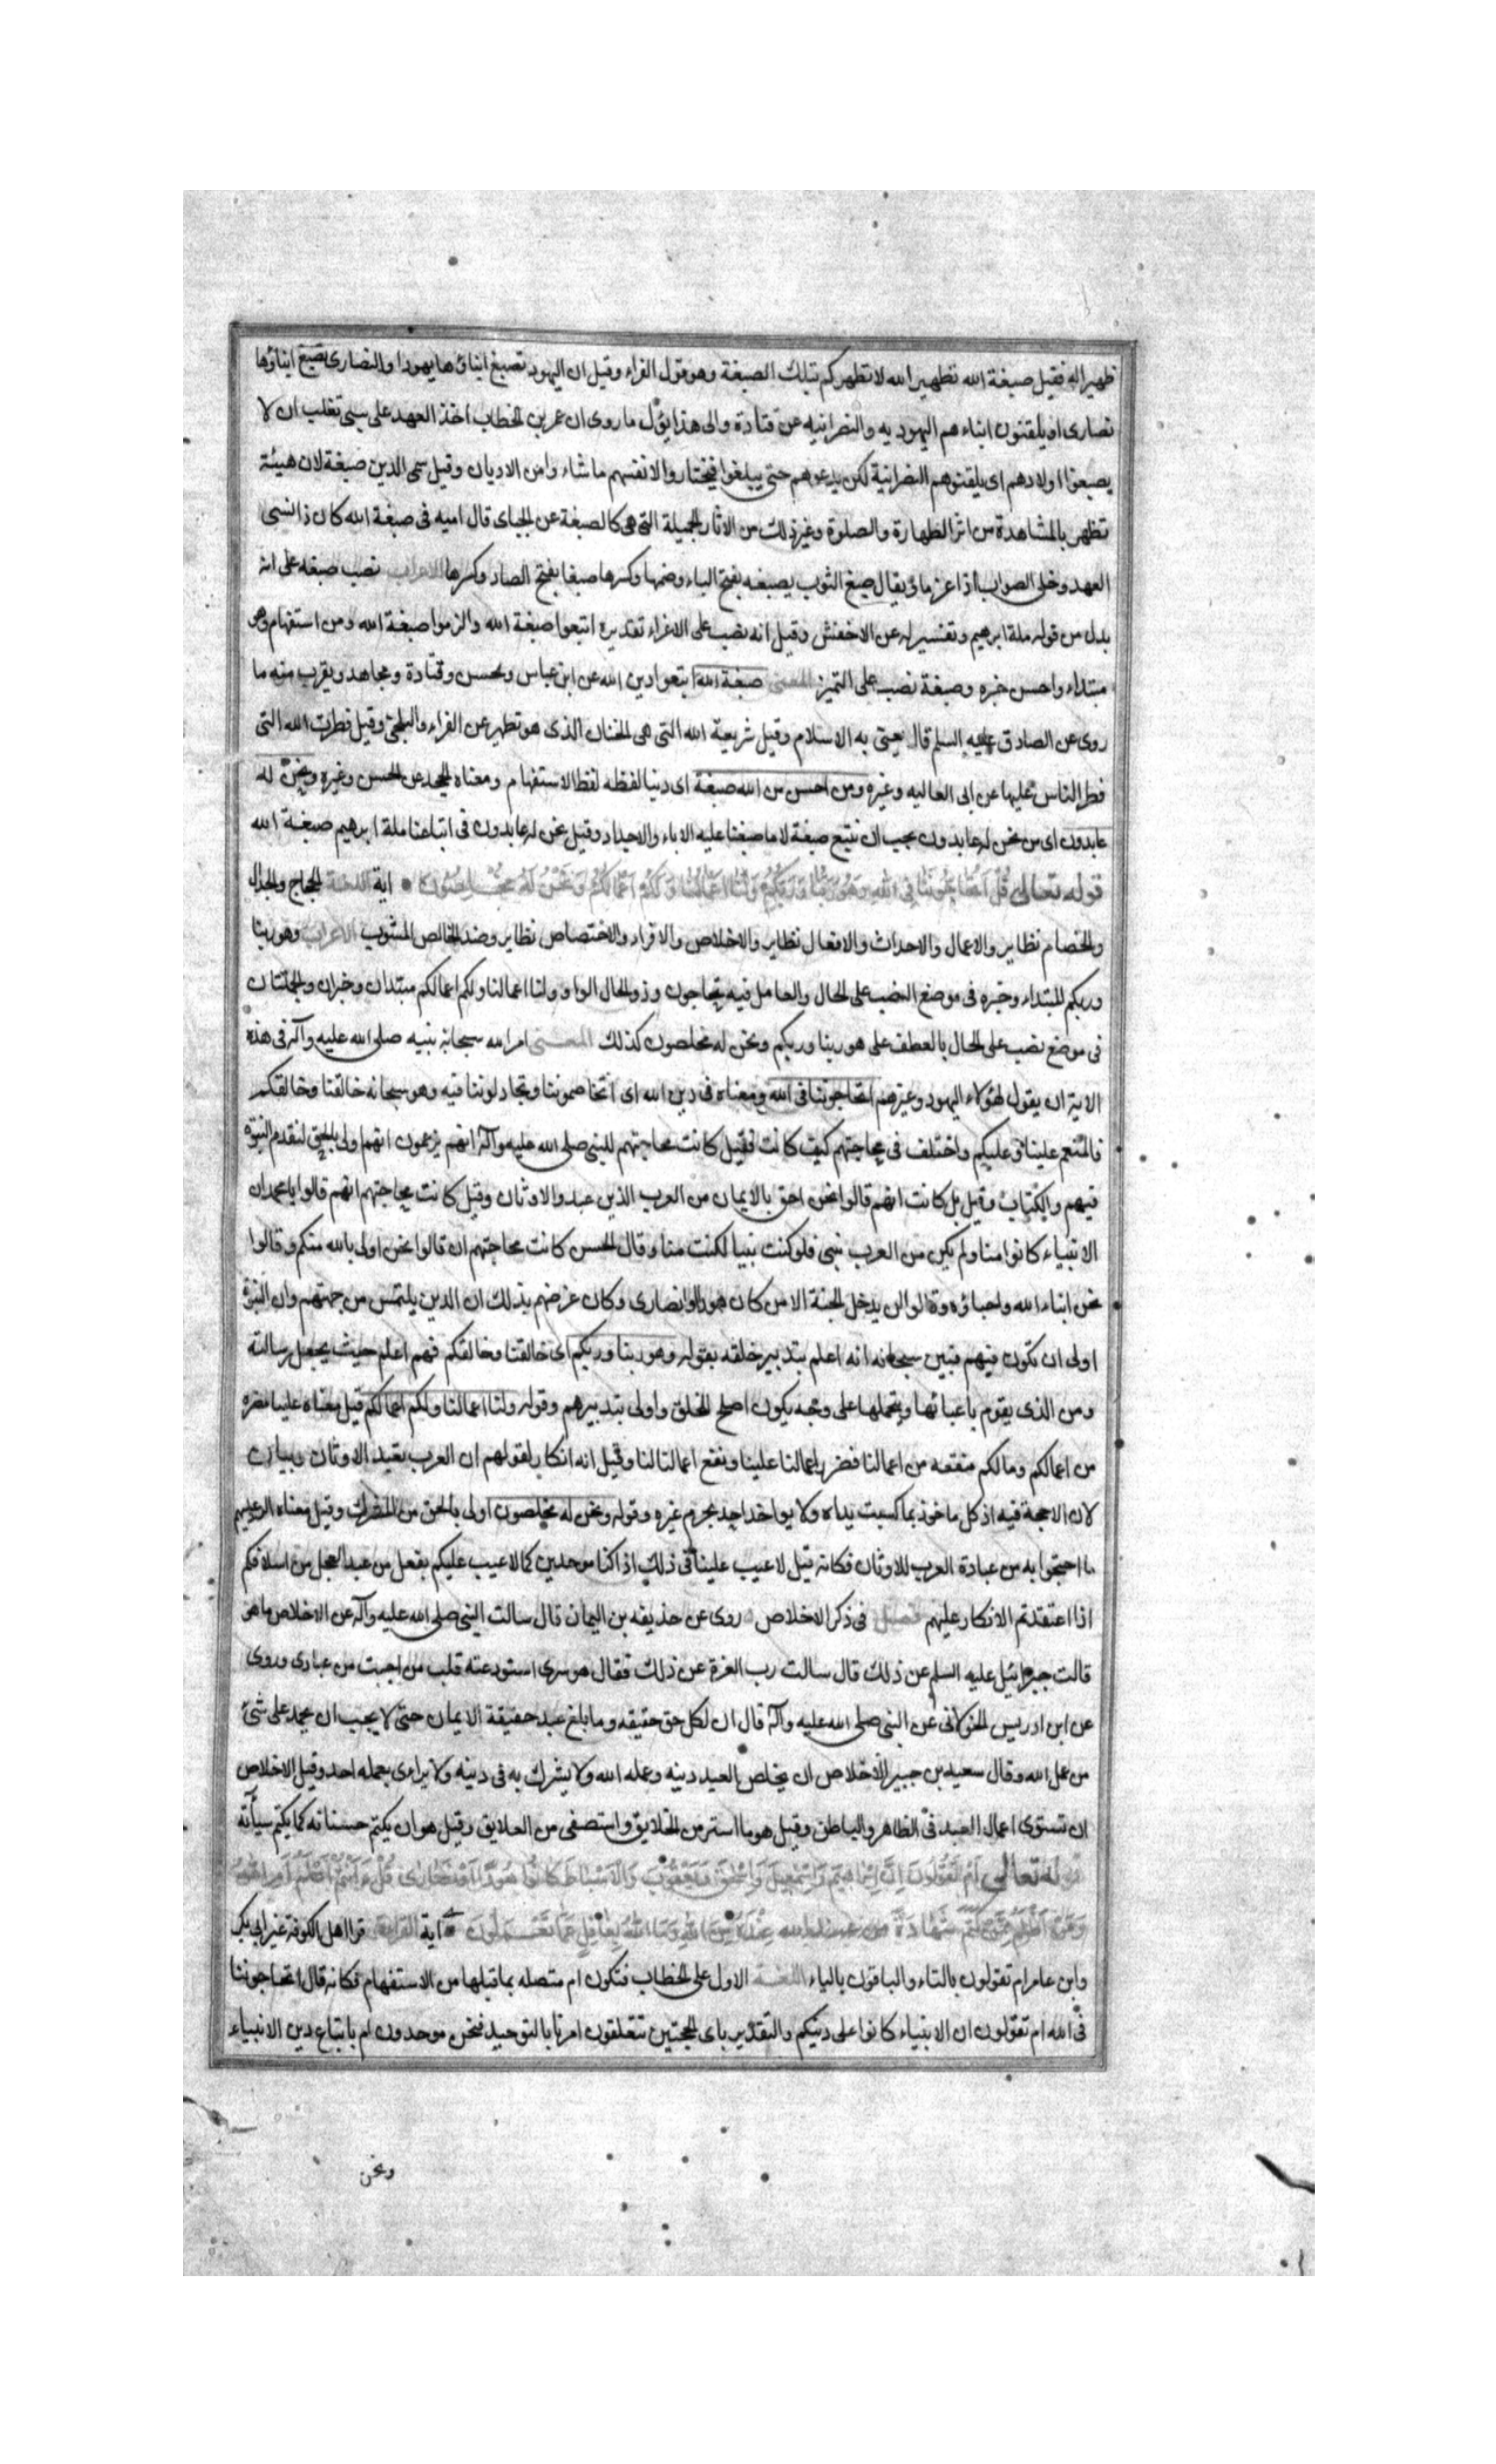 ظهيرا له فقيل صبغة الله تطهير الله لا تطهركم بتلك الصبغة وهو قول الفراء وقيل ان اليهود تصبغ ابناؤها يهودا والنصارى تصبغ ابناؤها
نصارى او يلقنون ابناءهم اليهوديه والنصرانيه عن قتادة والى هذا يؤل ما روى ان عمر بن الخطاب اخذ العهد على بنى تغلب ان لا
يصبغوا اولادهم اى يلقنوهم النصرانية لكن يدعوهم حتى يبلغوا فيختاروا لانفسهم ما شاءوا من الاديان وقيل سمى الدين صبغة لان هيئة
تظهر بالمشاهدة من اثر الطهارة والصلوة وغير ذلك من الاثار الجميلة التى هى كالصبغة عن الجباى قال اميه فى صبغة الله كان ذا نسى
العهد وخلى الصواب اذا عزما ؤ يقال صبغ الثوب يصبغه بفتح الباء وضمها وكسرها صبغا بفتح الصاد وكسرها الاعراب نصب صبغه على انه
بدل من قوله ملة ابرهيم وتفسير له عن الاخفش وقيل انه نصب على الاغراء تقديره اتبعوا صبغة الله والزموا صبغة الله ومن استفهام وهو
مبتداء واحسن خبره وصبغة نصب على التميز المعنى صبغة الله اتبعوا دين الله عن ابن عباس والحسن وقتادة ومجاهد ويقرب منه ما
روى عن الصادق عليه السلم قال يعنى به الاسلام وقيل شريعة الله التى هى الختان الذى هو تطهير عن الفراء والبلخى وقيل فطرت الله التى
فطر الناس عليها عن ابى العاليه وغيره ومن احسن من الله صبغة اى دينا لفظه لفظ الاستفهام ومعناه الجحد عن الحسن وغيره ونحن له
عابدون اى من نحن له عابدون يجب ان نتبع صبغة لا ما صبغنا عليه الاباء والاجداد وقيل نحن له عابدون فى اتباعنا ملة ابرهيم صبغة الله
قوله تعالى قُلْ اَتُحَاجُّونَنَا فِى اللهِ وَهُوَ رَبُّنَا وَرَبُّكُمْ وَلَنَا اَعْمَالُنَا وَلَكُمْ اَعْمَالُكُمْ وَنَحْنُ لَهُ مُخْلِصُونَ اية اللغة الحجاج والجدال
والخصام نظاير والاعمال والاحداث والافعال نظاير والاخلاص والافراد والاختصاص نظاير وضد الخالص المشوب الاعراب وهو ربنا
وربكم المبتداء وخبره فى موضع النصب على الحال والعامل فيه يحاجون وذو الحال الواو ولنا اعمالنا ولكم اعمالكم مبتدان وخبران والجملتان
فى موضع نصب على الحال بالعطف على هو ربنا وربكم ونحن له مخلصون كذلك المعنى امر الله سبحانه نبيه صلى الله عليه وآله فى هذه
الاية ان يقول لهؤلاء اليهود وغيرهم اتحاجوننا فى الله ومعناه فى دين الله اى اتخاصموننا وتجادلوننا فيه وهو سبحانه خالقنا وخالقكم
فالمنعم علينا وعليكم واختلف فى محاجتهم كيف كانت فقيل كانت محاجتهم للنبى صلى الله عليه وآله انهم يزعمون انهم اولى بالحق لتقدم النبوة
فيهم والكتاب وقيل بل كانت انهم قالوا نحن احق بالايمان من العرب الذين عبدوا الاوثان وقيل كانت محاجتهم انهم قالوا يا محمد ان
الانبياء كانوا منا ولم يكن من العرب نبى فلو كنت نبيا لكنت منا وقال الحسن كانت محاجتهم ان قالوا نحن اولى بالله منكم وقالوا
نحن ابناء الله واحباؤه وقالوا لن يدخل الجنة الا من كان هودا او نصارى وكان غرضهم بذلك ان الدين يلتمس من جهتهم وان النبوة
اولى ان تكون فيهم فبين سبحانه انه اعلم بتدبير خلقه بقوله وهو ربنا وربكم اى خالقنا وخالقكم فهم اعلم حيث يجعل رسالته
ومن الذى يقوم باعبائها ويتحملها على وجه يكون اصلح للخلق واولى بتدبيرهم وقوله ولنا اعمالنا ولكم اعمالكم قيل معناه علينا مضره
من اعمالكم وما لكم منفعه من اعمالنا فضر اعمالنا علينا ونفع اعمالنا لنا وقيل انه انكار لقولهم ان العرب تعبد الاوثان وبيان
لان لا حجة فيه اذ كل ماخوذ بما كسبت يداه ولا يواخذ احد بجرم غيره وقوله ونحن له مخلصون اولى بالحق من المشرك وقيل معناه الرد عليهم
ما احتجوا به من عبادة العرب للاوثان فكانه قيل لا عيب علينا فى ذلك اذ اكنا موحدين كما لا عيب عليكم بفعل من عبد العجل من اسلافكم
اذا اعتقدتم الانكار عليهم فصل فى ذكر الاخلاص روى عن حذيفه بن اليمان قال سالت النبى صلى الله عليه وآله عن الاخلاص ما هو
قالت جبرائيل عليه السلم عن ذلك قال سالت رب العزة عن ذلك فقال هو سرى استودعته قلب من احببت من عبادى وروى
عن ابن ادريس الخولانى عن النبى صلى الله عليه وآله قال ان لكل حق حقيقه وما بلغ عبد حقيقة الايمان حتى لا يجب ان يحمد على شئ
من عمل الله وقال سعيد بن جبير الاخلاص ان يخلص العبد دينه وعمله الله ولا يشرك به فى دينه ولا يراءى بعمله احد وقيل الاخلاص
ان تستوى اعمال العبد فى الظاهر والباطن وقيل هو ما استتر من الخلايق واستصفى من العلايق وقيل هو ان يكتم حسناته كما يكتم سيأته
قوله تعالى اَمْ تَقُولُونَ اِنَّ اِبْرَاهِيمَ وَاِسْمٰعِيلَ وَاِسْحٰقَ وَيَعْقُوبَ وَالْاَسْبَاطَ كَانُوا هُودًا اَوْ نَصَارٰى قُلْ ءَاَنْتُمْ اَعْلَمُ اَمِ اللهُ
وَمَنْ اَظْلَمُ مِمَّنْ كَتَمَ شَهَادَةً عِنْدَهُ مِنَ اللهِ وَمَا اللهُ بِغَافِلٍ عَمَّا تَعْمَلُونَ اية القراءة قرا اهل الكوفة غير ابى بكر
وابن عامر ام تقولون بالتاء والباقون بالياء اللغة الاول على الخطاب فتكون ام متصله بما قبلها من الاستفهام فكانه قال اتحاجوننا
فى الله ام تقولون ان الانبياء كانوا على دينكم والتقدير باى الحجتين تتعلقون امرنا بالتوحيد فنحن موحدون ام باتباع دين الانبياء
ونحن